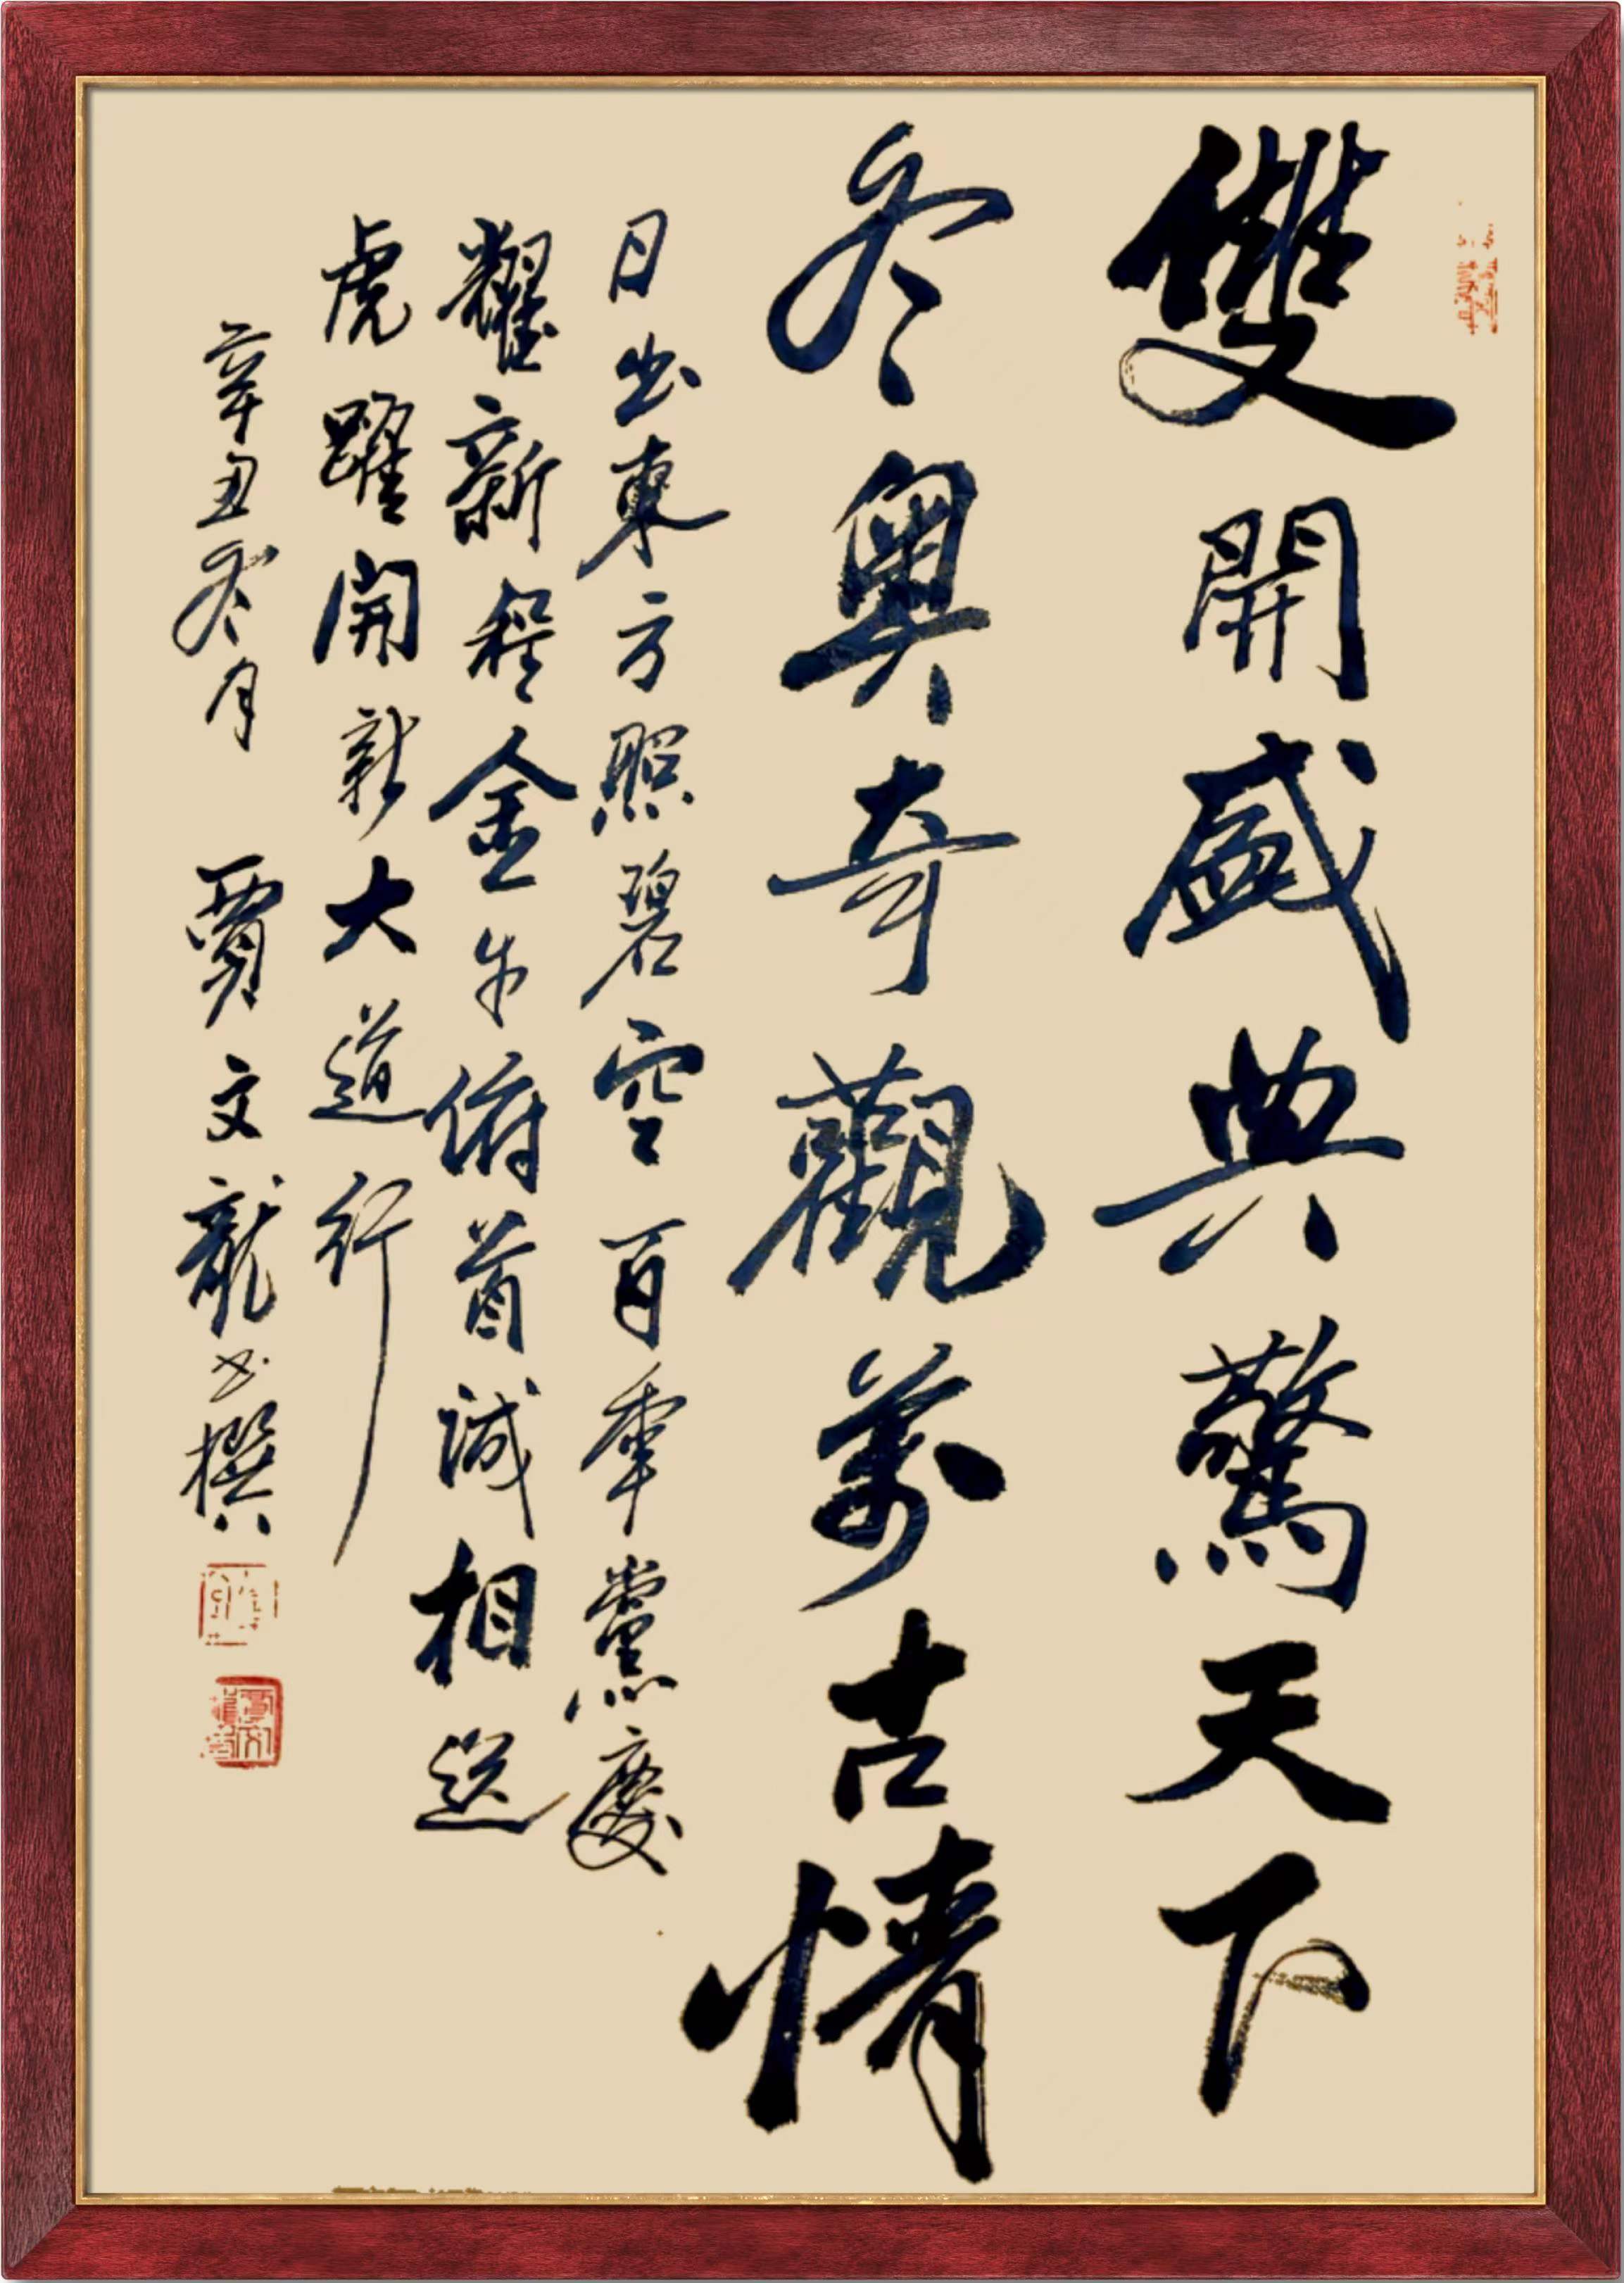 雙開盛典驚天下
冬奥奇觀萬古情
日出東方照碧空百年黨慶
耀新程金牛俯首誠相送
虎躍開新大道行
辛丑冬月 賈文龍書撰